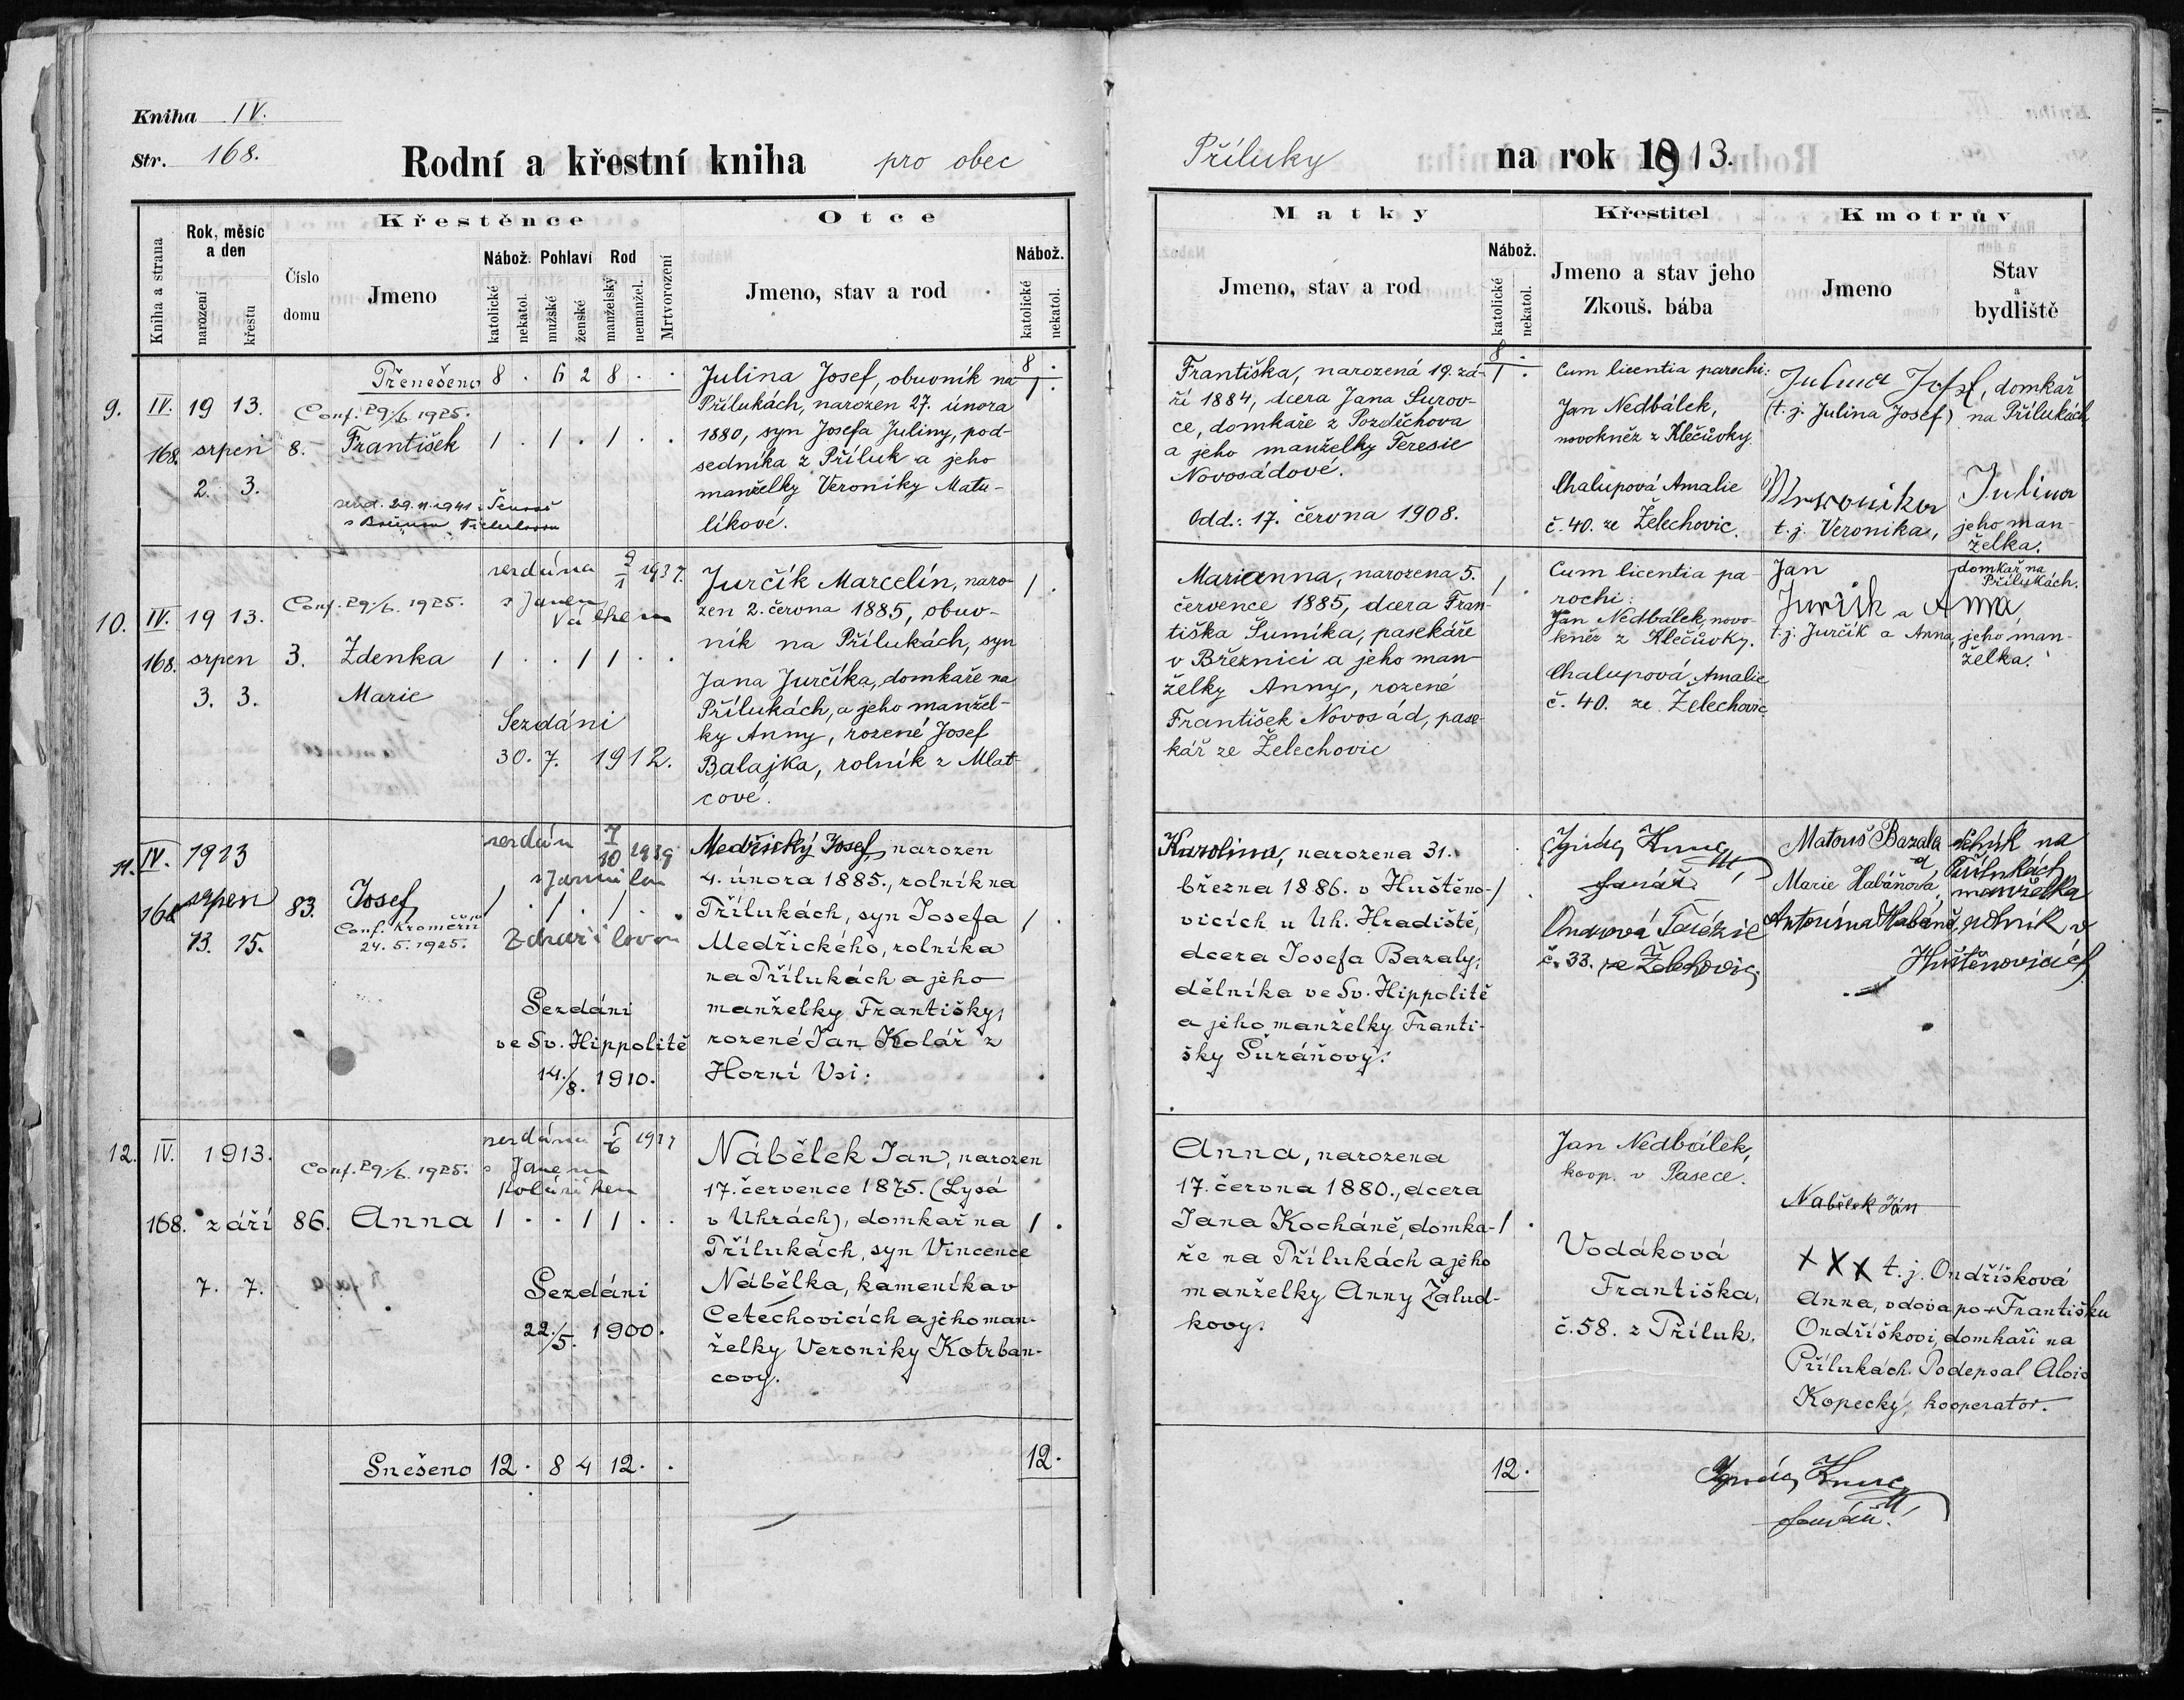 Kniha IV.
Str. 168.
Rodní a křestní kniha pro obec
Příluky na rok 1913.
Kniha a strana
Rok, měsíc a den
narození
křestu
Číslo domu
Křestěnce
Jmeno
Nábož.
katolické
nekatol.
Pohlaví
mužské
ženské
Rod
manželský
nemanžel.
Mrtvorození
Otce
Jmeno, stav a rod
Nábož.
katolické
nekatol.
Matky
Jmeno, stav a rod
Nábož.
katolické
nekatol.
Křestitel
Jmeno a stav jeho
Zkouš. bába
Kmotrův
Jmeno
Stav
a
bydliště
Přenešeno 8 . 6 2 8 . . 8 . 8 .
9. IV. 168.
1913.
srpen
2. 3.
8.
Conf. 29./6. 1925.
František
1 . 1 . 1 . .
Julina Josef, obuvník na
Přílukách, narozen 27. února
1880, syn Josefa Juliny, pod-
sedníka z Příluk a jeho
manželky Veroniky Matu-
líkové.
1 .
Františka, narozená 19. zá-
ří 1884, dcera Jana Surov-
ce, domkaře z Pozděchova
a jeho manželky Teresie
Novosádové.
Odd.: 17. června 1908.
1 .
Cum licentia parochi:
Jan Nedbálek,
novokněz z Klečůvky
Chalupová Amalie
č. 40. ze Želechovic.
Julina Josef, domkař
(t. j. Julina Josef) na Přílukách
Veronika Julina
t. j. Veronika, jeho man-
želka.
10. IV. 168.
1913.
srpen
3. 3.
3.
Conf. 29./6. 1925.
Zdenka
Marie
1 . . 1 1 . .
Sezdáni
30. 7. 1912.
Jurčík Marcelín, naro-
zen 2. června 1885, obuv-
ník na Přílukách, syn
Jana Jurčíka, domkaře na
Přílukách, a jeho manžel-
ky Anny, rozené Josef
Balajka, rolník z Mlat-
cové.
1 .
Marianna, narozena 5.
července 1885, dcera Fran-
tiška Šumíka, pasekáře
v Březnici a jeho man-
želky Anny, rozené
František Novosád, pase-
kář ze Želechovic
1 .
Cum licentia pa-
rochi:
Jan Nedbálek, novo-
kněz z Klečůvky.
Chalupová Amalie
č. 40. ze Želechovic
Jan domkař na
Přílukách.
Jurčík a Anna
t. j. Jurčík a Anna, jeho man-
želka.
11. IV. 168
1913
srpen
13. 15.
83.
Josef
24. 5. 1925.
1 . 1 . 1 . .
Sezdáni
ve Sv. Hippolitě
14./8. 1910.
Medřický Josef, narozen
4. února 1885., rolník na
Přílukách, syn Josefa
Medřického, rolníka
na Přílukách a jeho
manželky Františky,
rozené Jan Kolář z
Horní Vsi.
1 .
Karolina, narozena 31.
března 1886. v Huštěno-
vicích u Uh. Hradiště,
dcera Josefa Bazaly,
dělníka ve Sv. Hippolitě
a jeho manželky Franti-
šky Šuráňovy.
1 .
farář.
č. 33. ze Želechovic.
Matouš Bazala dělník na
Přílukách
Marie Habáňová, manželka
rolník v
Huštěnovicích
12. IV. 168.
1913.
září
7. 7.
86.
Conf. 29./6. 1925.
Anna
1 . . 1 1 . .
Sezdáni
22./5. 1900.
Nábělek Jan, narozen
17. července 1875. (Lysá
v Uhrách), domkař na
Přílukách, syn Vincence
Nábělka, kameníka v
Cetechovicích a jeho man-
želky Veroniky Kotrban-
covy.
1 .
Anna, narozena
17. června 1880., dcera
Jana Kocháně, domka-
ře na Přílukách a jeho
manželky Anny Žalud-
kovy.
1 .
Jan Nedbálek,
koop. v Pasece.
Vodáková
Františka,
č. 58. z Příluk.
Nabělek Ján
XXX t. j. Ondříšková
Anna, vdova po + Františku
Ondříškovi, domkaři na
Přílukách. Podepsal Alois
Kopecký, kooperator.
Snešeno 12 . 8 4 12 . . 12. 12.
farář.